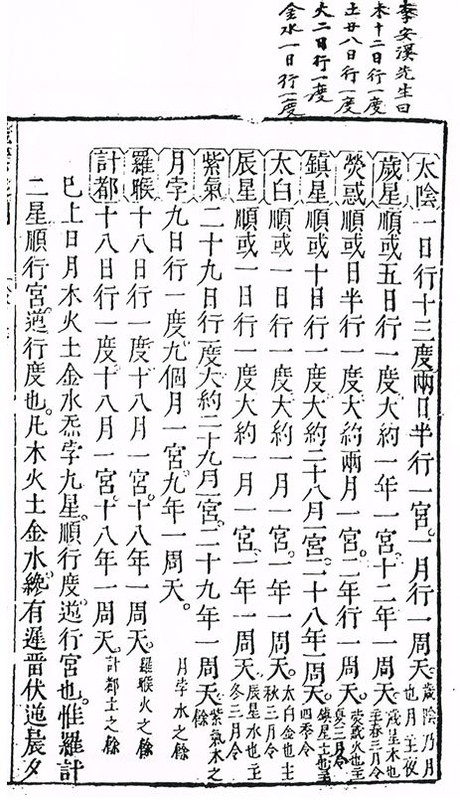 李安溪先生曰
木十二日行一度
土廿八日行一度
火二日行一度
金水一日行一度
太陰一日行十三度兩日半行一宮。一月行一周天。歲陰乃月也月主夜
歲星順或五日行一度大約一年一宮。十二年一周天。歲星木也主春三月令
熒惑順或日半行一度大約兩月一宮。二年行一周天。熒惑火也主夏三月令
鎮星順或十日行一度大約二十八月一宮。二十八年一周天。鎮星土也主四季令
太白順或一日行一度大約一月一宮。一年一周天。太白金也主秋三月令
辰星順或一日行一度大約一月一宮。一年一周天。辰星水也主冬三月令
紫氣二十九日行一度大約二十九月一宮。二十九年一周天。紫氣木之餘
月孛九日行一度九個月一宮。九年一周天。月孛水之餘
羅㬋十八日行一度十八月一宮。十八年一周天。羅㬋火之餘
計都十八日行一度十八月一宮。十八年一周天。計都土之餘
已上日月木火土金水炁孛九星。順行度。逆行宮也。惟羅計
二星順行宮。逆行度也。凡木火土金水纔有遲畱伏逆晨夕